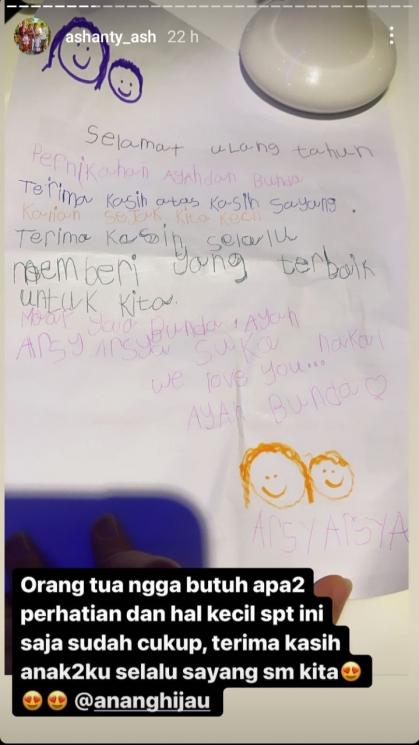 ashanty_ash 22 h
Selamat ulang tahun
Pernikahan Ayah dan Bunda
Terima kasih atas kasih sayang.
Kalian sejak kita kecil
Terima kasih selalu
memberi yang terbaik
untuk kita.
Maaf ya Bunda, Ayah
Arsy Arsya suka nakal
we love you...
AYAH Bunda
ARSY ARSYA
Orang tua ngga butuh apa2
perhatian dan hal kecil spt ini
saja sudah cukup, terima kasih
anak2ku selalu sayang sm kita😍
😍😍 @ananghijau